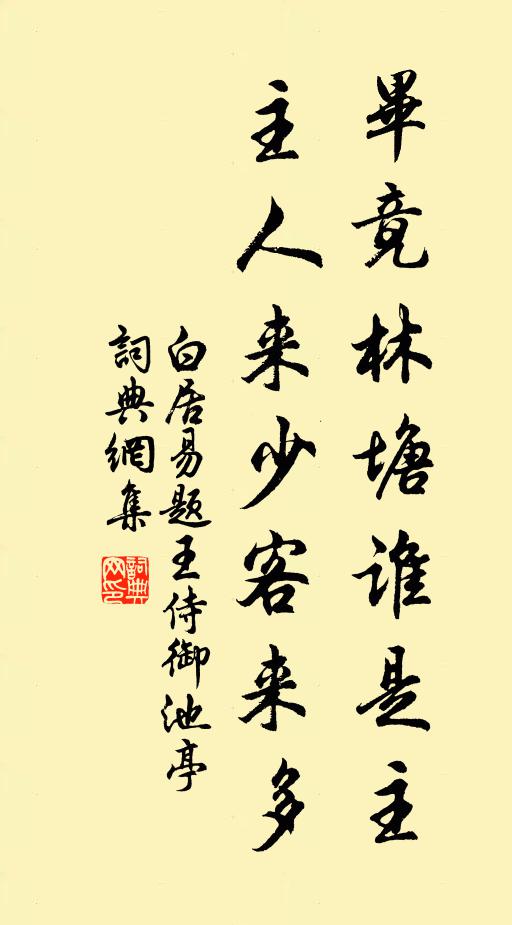 畢竟林塘谁是主
主人来少客来多
白居易题王侍御池亭
詞典網集
詞典网印